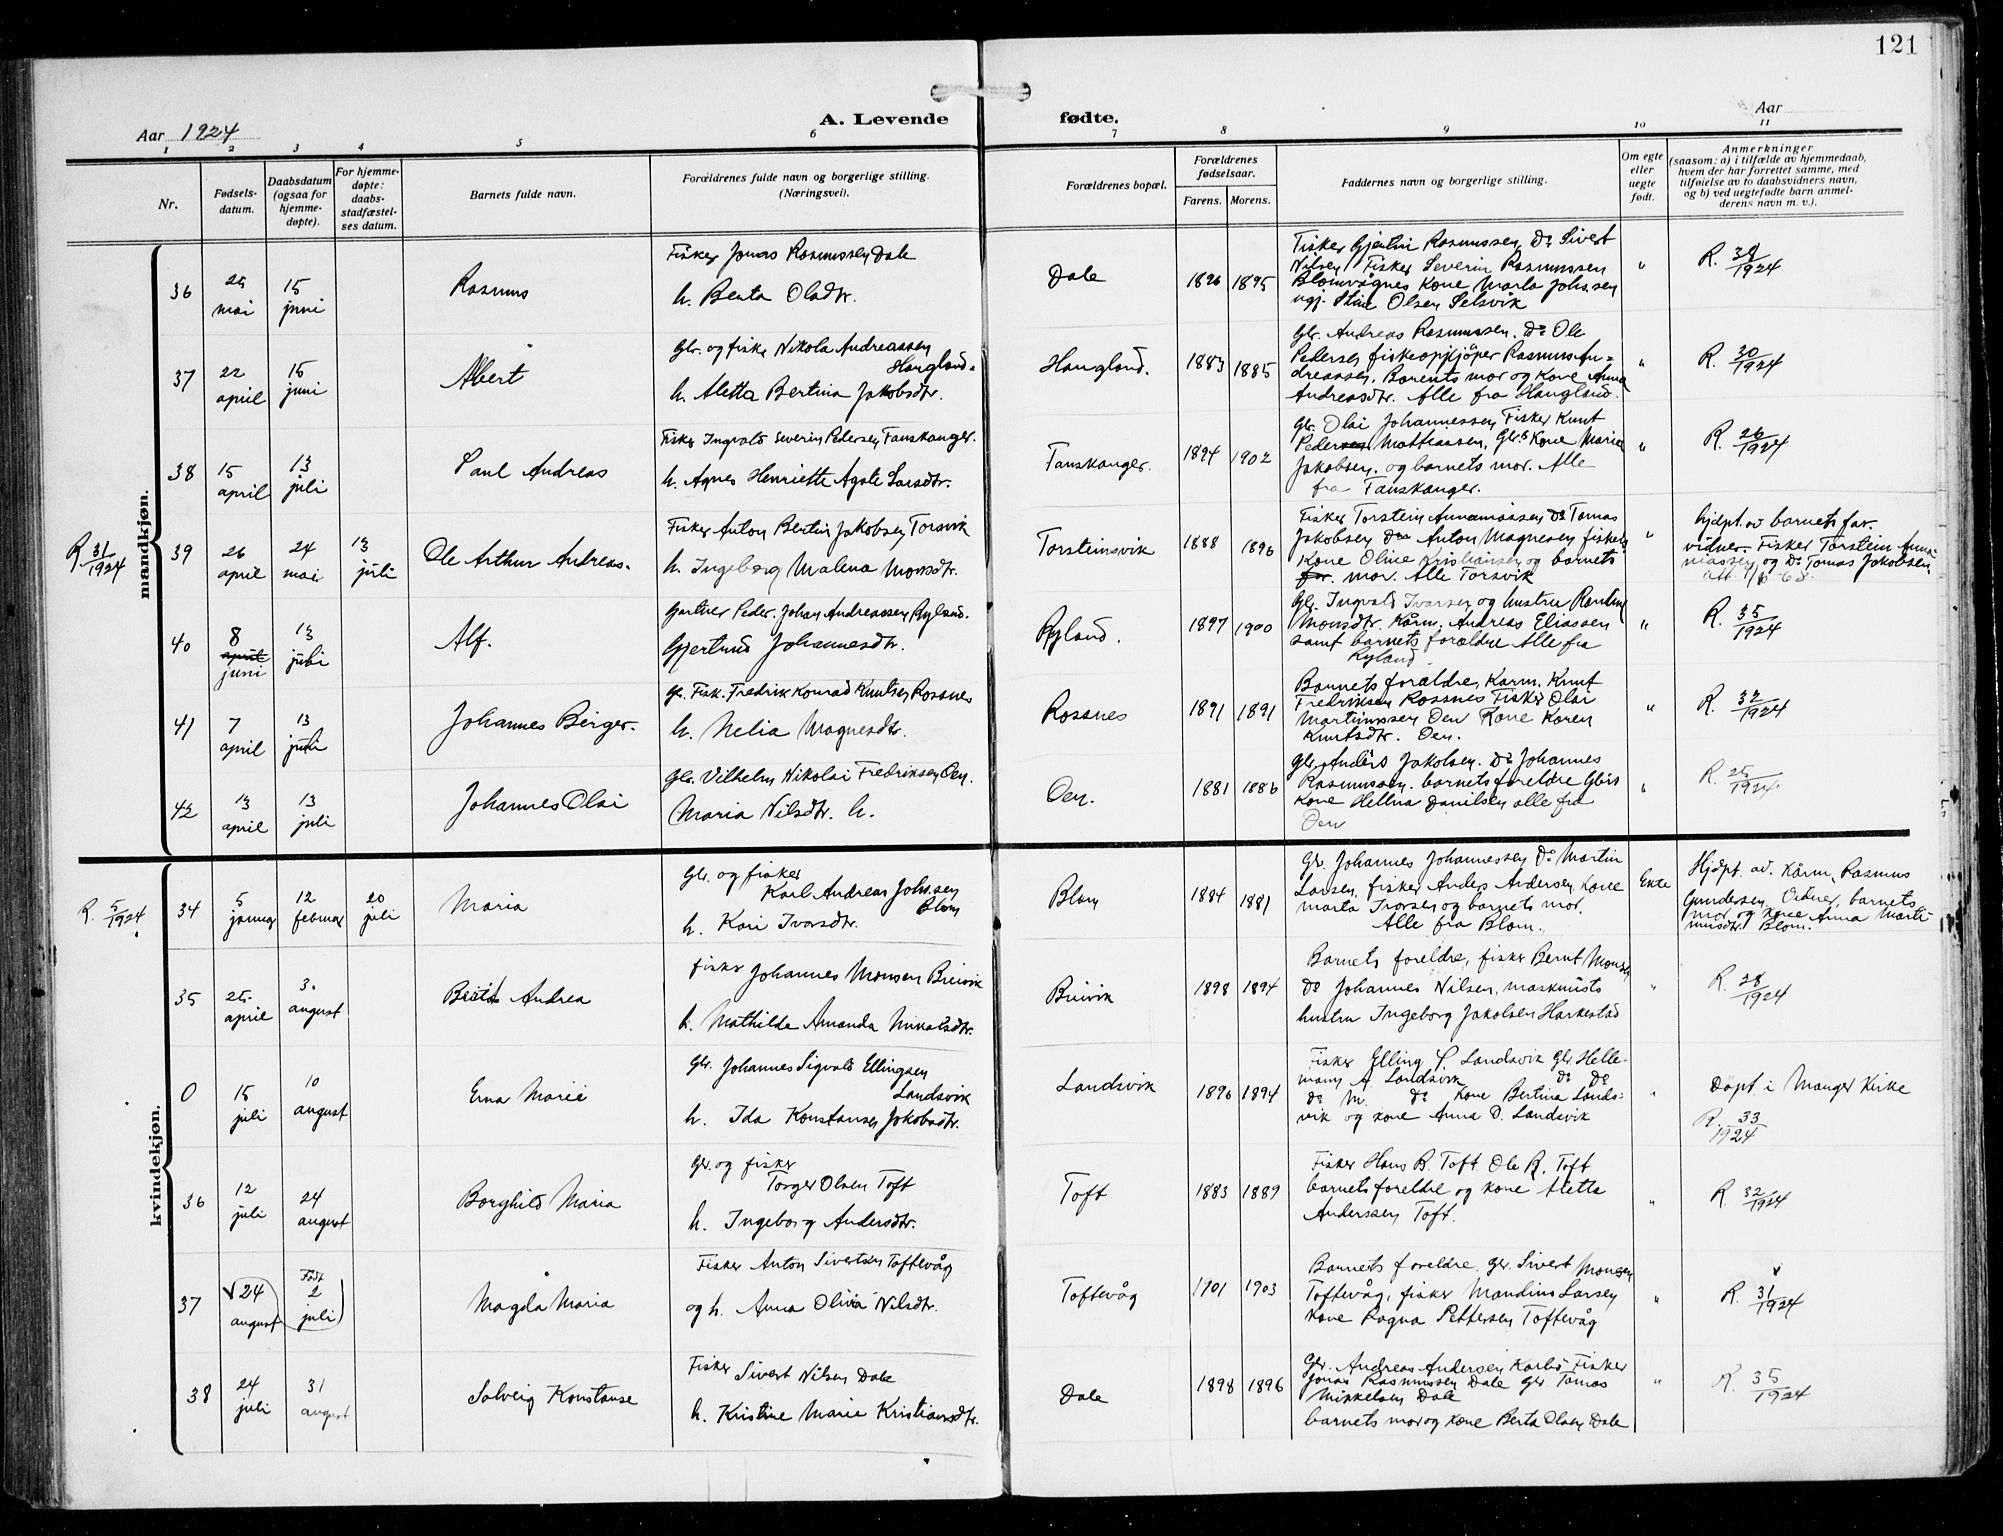 121
Aar 1924
A. Levende fødte.
Aar
1 2 3 4 5 6 7 8 9 10 11
Nr.
Fødsels-
datum.
Daabsdatum
(ogsaa for
hjemme-
døpte).
For hjemme-
døpte:
daabs-
stadfæstel-
ses datum.
Barnets fulde navn.
Forældrenes fulde navn og borgerlige stilling.
(Næringsvei).
Forældrenes bopæl.
Forældrenes
fødselsaar.
Farens. Morens.
Faddernes navn og borgerlige stilling.
Om egte
eller
uegte
født.
Anmerkninger
(saasom: a) i tilfælde av hjemmedaab,
hvem der har forrettet samme, med
tilføielse av to daabsvidners navn,
og b) ved uegtefødte barn anmel-
derens navn m. v.).
mandkjøn.
36
25
mai
15
juni
Rasmus
Fisker Jonas Rasmussen Dale
h. Berta Olsdtr.
Dale
1896 1895
Fisker Gjertin Rasmussen, Do Sivert
Nilsen, Fisker Severin Rasmussen
Blomvågnes Kone Marta Johs.sen
ugj. Stine Olsen Selsvik
"
R. 1924
37
22
april
15
juni
Albert
Gbr. og fisker Nikolai Andreassen
Haugland.
h. Aletta Bertina Jakobsdtr.
Haugland.
1883 1885
Gbr. Andreas Rasmussen. Do Ole
Pedersen fiskeopkjøper Rasmus An-
dreassen, Barnets mor og kone Anna
Andreasdtr. Alle fra Haugland.
"
R. 30/1924
38
15
april
13
juli
Paul Andreas
Fisker Ingvald Severin Pedersen Fanskanger.
h. Agnes Henriette Agate Larsdtr.
Fanskanger.
1894 1902
Gbr. Olai Johannessen Fisker Knut
Pedersen Mathiassen, Gbr.s Kone Maria
Jakobsen. og barnets mor. Alle
fra Fanskanger.
"
R. 26/1924
R. 31/1924
39
26
april
24
mai
13
juli
Ole Arthur Andreas.
Fisker Anton Bertin Jakobsen Torsvik
h. Ingeborg Malena Monsdtr.
Torsteinsvik
1888 1896
Fisker Torstein Annamassen Do Tomas
Jakobsen Do Anton Magnesen fiskers
Kone Oline Kristiansen og barnets
far. mor. Alle Torsvik
"
hjdpt. av barnets far.
vidner. Fisker Torstein Anna-
massen og Do Tomas Jakobsen
40
8
april
juni
13
juli
Alf.
Gartner Peder Johan Andreassen Rylund.
Gjertrud Johannesdtr.
Ryland.
1897 1900
Gbr. Ingvald Ivarsen og hustru Randine
Monsdtr. Kårm. Andreas Eliassen
samt barnets forældre Alle fra
Ryland
"
R. 35/1924
41
7
april
13
juli
Johannes Birger.
Gr. Fisk. Fredrik Konrad Knutsen Rossnes
h. Nelia Magnesdtr.
Rossnes
1891 1891
Barnets forældre, Karm. Knut
Fredriksen Rossnes Fisker Olai
Martinussen Oen Kone Karen
Knutsdtr. Oen.
"
R. 1924
42
13
april
13
juli
Johannes Olai
Gbr. Vilhelm Nikolai Fredriksen Oen.
Maria Nilsdtr. h.
Oen.
1881 1886
Gbr. Anders Jakobsen. Do Johannes
Rasmussen. barnets foreldre Gbrs
Kone Hellna Danilsen alle fra
Oen
"
R. 25/1924
kvindekjøn.
R. 5/1924
34
5
januar
12
februar
20
juli
Maria
Gbr. og fisker
Karl Andreas Johs.sen
Blom
h. Kari Ivarsdtr.
Blom
1884 1881
Gbr. Johannes Johannessen Do Martin
Larsen, fisker Anders Andersen, kone
Marta Ivarsen og barnets mor.
Alle fra Blom.
Ekte
Hjdpt. av. Kårm. Rasmus
Gundersen, Vidner, barnets
mor og kone Anna Marti-
nusdtr. Blom.
35
25
april
3.
august
Berta Andrea
fisker Johannes Monsen Breivik
h. Mathilde Amanda Nikolsdtr.
Breivik
1898 1894
Barnets foreldre, fisker Bernt Monsen
Do Johannes Nilsen, maskinists
hustru Ingeborg Jakobsen Harkestad
"
R. 28/1924
0
15
juli
10
august
Erna Marie
Gbr. Johannes Sigvald Ellingsen
Landsvik
h. Ida Konstanse Jakobsdtr.
Landsvik
1896 1894
Fisker Elling P. Landsvik Gbr Helle-
mann A. Landsvik Do Do
Do M. Do Kone Bertina Lands-
vik og kone Anna D. Landsvik
"
Døpt i Manger Kirke
R. 33/1924
36
12
juli
24
august
Borghild Maria
Gbr. og fisker
Torger Olsen Toft
h. Ingeborg Andersdtr.
Toft
1883 1889
Fisker Hans B. Toft Ole R. Toft
barnets foreldre og kone Aletta
Anderssen Toft.
"
R. 32/1924
37
√ 24
august
Født
2
juli
Magda Maria
Fisker Anton Sivertsen Toftevåg
og h. Anna Olivia Nilsdtr.
Toftevåg
1901 1903
Barnets foreldre. Gbr. Sivert Monsen
Toftevåg, fisker Mandius Larsen
Kone Ragna Pettersen Toftevåg
"
R. 31/1924
38
24
juli
31
august
Solveig Konstanse
Fisker Sivert Nilsen Dale
h. Kristine Marie Kristiansdtr.
Dale
1898 1896
Gbr. Andreas Andersen Karlsø Fisker
Jonas Rasmussen Dale Gbr Tomas
Mikkelsen Dale
barnets mor og kone Berta Olsen Dale
"
R. 35/1924